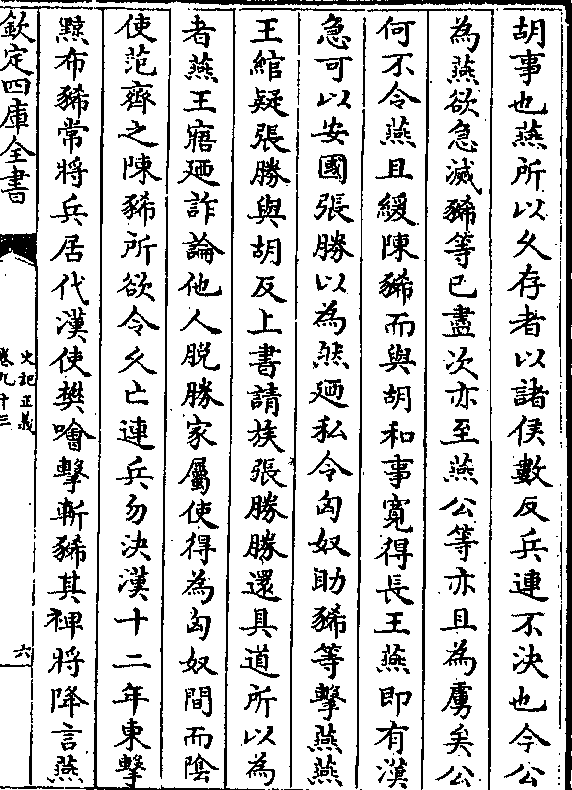 胡事也燕所以久存者以諸侯數反兵連不決也今公
為燕欲急滅豨等已盡次亦至燕公等亦且為虜矣公
何不令燕且緩陳豨而與胡和事寛得長王燕即有漢
急可以安國張勝以為然廼私令匈奴助豨等擊燕燕
王綰疑張勝與胡反上書請族張勝勝還具道所以為
者燕王寤廼詐論他人脫勝家屬使得為匈奴間而陰
使范齊之陳豨所欲令久亡連兵勿決漢十二年東擊
黥布豨常將兵居代漢使樊噲擊斬豨其裨將降言燕
欽定四庫全書
史記正義
卷九十三
六